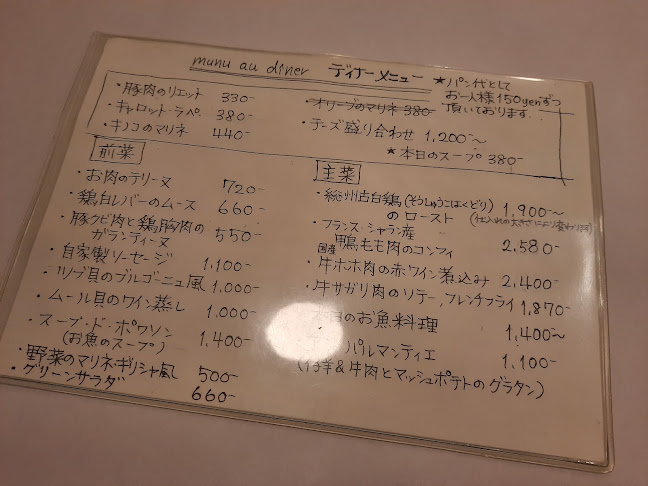 munu au diner ディナーメニュー
★パン代として
お一人様150yenずつ
頂いております...
・豚肉のリエット 330-
・キャロット・ラペ. 380-
・キノコのマリネ 440-
・オリーブのマリネ 380-
・チーズ盛り合わせ 1,200~
★本日のスープ 380-
前菜
・お肉のテリーヌ 720-
・鶏白レバーのムース 660-
・豚クビ肉と鶏胸肉の
ガランティーヌ 550-
・自家製ソーセージ 1,100-
・ツブ貝のブルゴーニュ風 1,000-
・ムール貝のワイン蒸し 1,000-
・スープ・ド・ポワソン
(お魚のスープ) 1,400-
・野菜のマリネ・ギリシャ風 500-
・グリーンサラダ 660-
主菜
・総州古白鶏(そうしゅうこはくどり)
のロースト 1,900~
・フランス・シャラン産
鴨もも肉のコンフィ 2,580-
国産
・牛ホホ肉の赤ワイン煮込み 2,400-
・牛サガリ肉のソテー,フレンチフライ 1,870-
日のお魚料理 1,400~
パルマンティエ 1,100-
(仔羊&牛肉とマッシュポテトのグラタン)